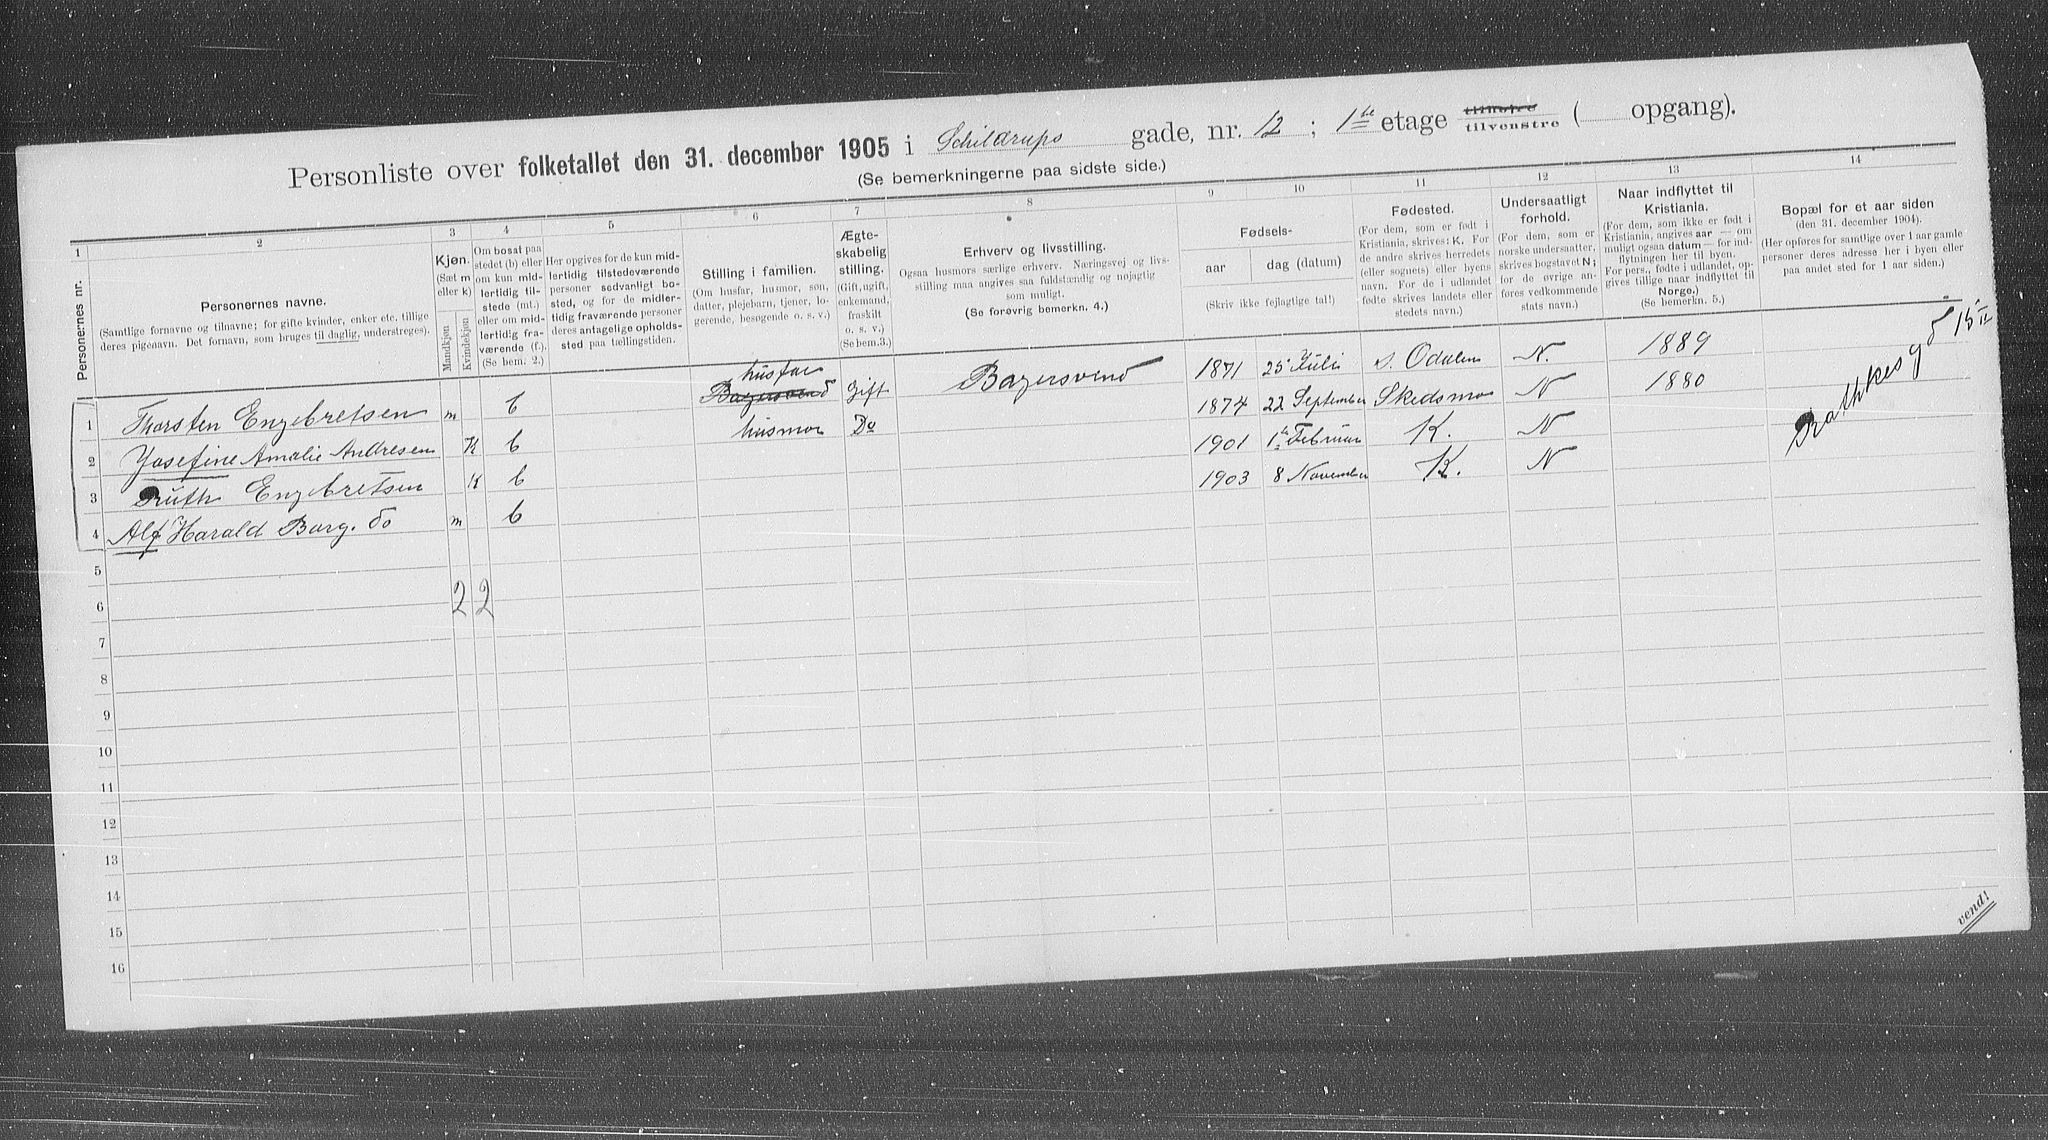 Personliste over folketallet den 31. december 1905 i Schildrups gade, nr. 12 ; 1ste etage tilhøire tilvenstre ( opgang).
(Se bemerkningerne paa sidste side.)
1 2 3 4 5 6 7 8 9 10 11 12 13 14
Personernes nr.
Personernes navne.
(Samtlige fornavne og tilnavne; for gifte kvinder, enker etc. tillige
deres pigenavn. Det fornavn, som bruges til daglig, understreges).
Kjøn.
(Sæt m
eller k)
Mandkjøn
Kvindekjøn
Om bosat paa
stedet (b) eller
om kun mid-
lertidig til-
stede (mt.)
eller om mid-
lertidig fra-
værende (f.)
(Se bem. 2.)
Her opgives for de kun mid-
lertidig tilstedeværende
personer sedvanligt bo-
sted, og for de midler-
tidig fraværende personer
deres antagelige opholds-
sted paa tællingstiden.
Stilling i familien.
(Om husfar, husmor, søn,
datter, plejebarn, tjener, lo-
gerende, besøgende o. s. v.)
Ægte-
skabelig
stilling.
(Gift, ugift,
enkemand,
fraskilt
o. s. v.)
(Se bem.3.)
Erhverv og livsstilling.
Ogsaa husmors særlige erhverv. Næringsvej og livs-
stilling maa angives saa fuldstændig og nøjagtig
som muligt.
(Se forøvrig bemerkn. 4.)
Fødsels-
aar
dag (datum)
(Skriv ikke fejlagtige tal!)
Fødested.
(For dem, som er født i
Kristiania, skrives: K. For
de andre skrives herredets
(eller sognets) eller byens
navn. For de i udlandet
fødte skrives landets eller
stedets navn.)
Undersaatligt
forhold.
(For dem, som er
norske undersaatter,
skrives bogstavet N;
for de øvrige an-
føres vedkommende
stats navn.)
Naar indflyttet til
Kristiania.
(For dem, som ikke er født i
Kristiania, angives aar — om
muligt ogsaa datum — for ind-
flytningen her til byen.
For pers., fødte i udlandet, op-
gives tillige naar indflyttet til
Norge.)
(Se bemerkn. 5.)
Bopæl for et aar siden
(den 31. december 1904).
(Her opføres for samtlige over 1 aar gamle
personer deres adresse her i byen eller
paa andet sted for 1 aar siden.)
1 Thorsten Engebretsen m b husfar Bagersvend Gift Bagersvend 1871 25 Juli s. Odalen N. 1889 Rathkes gd 15 II
2 Josefine Amalie Andresen K b husmor Do 1874 22 September Skedsmo N 1880
3 Ruth Engebretsen K b 1901 1ste Februar K. N
4 Alf Harald Borg. do m b 1903 8 November K. N
5
6 2 2
7
8
9
10
11
12
13
14
15
16
vend!